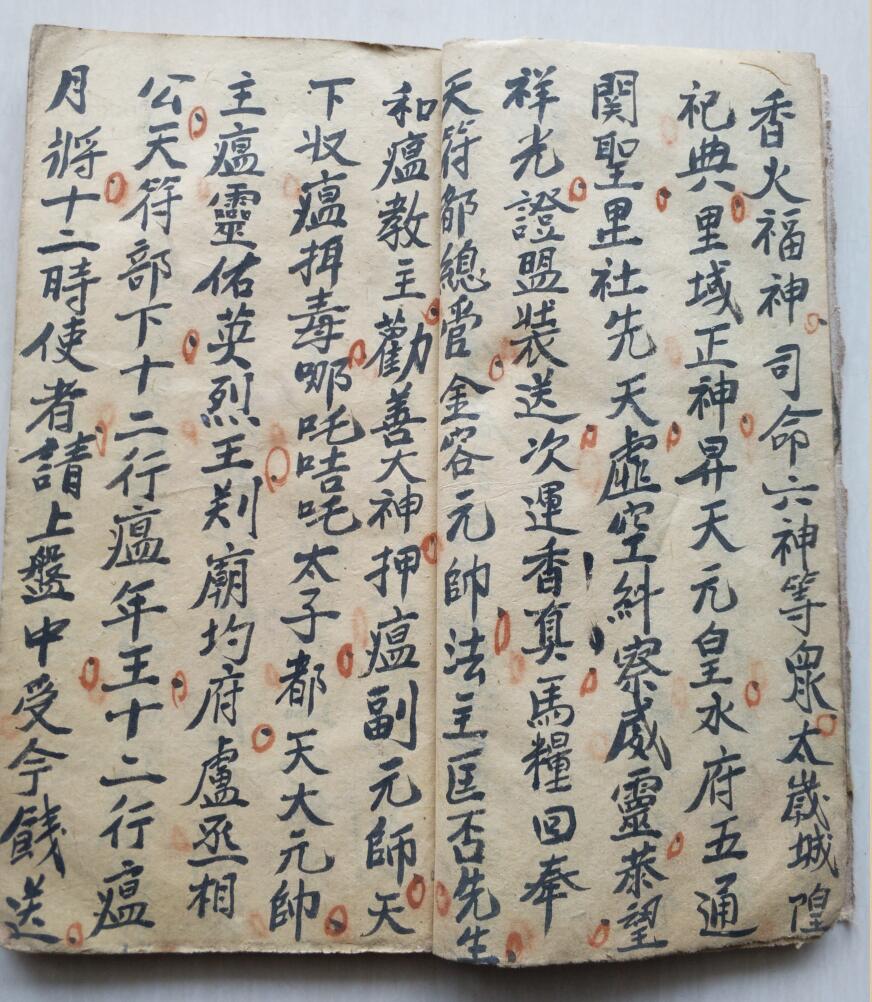 香火福神司命六神等眾太歲城隍
祀典里域正神昇天元皇水府五通
関聖里社先天虛空糾察威靈恭望
祥光證盟裝送次運香真馬糧回奉
天符都總管金容元帥法主匡否先生
和瘟教主勸善大神押瘟副元師天
下収瘟揖毒哪吒咭吒太子都天大元帥
主瘟靈佑英烈王刘廟圴府盧丞相
公天符部下十二行瘟年王十二行瘟
月將十二時使者請上盤中受今餞送